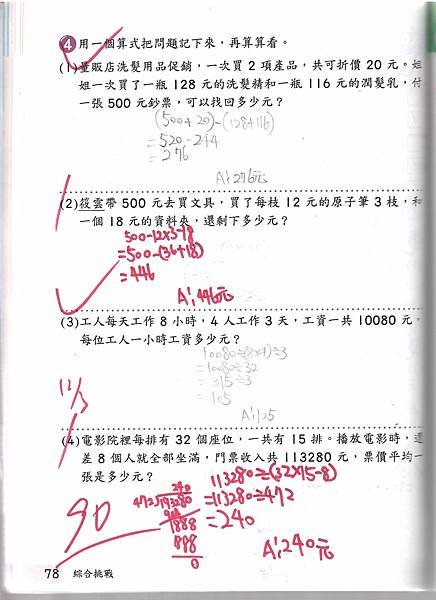 4 用一個算式把問題記下來，再算算看。
(1)量販店洗髮用品促銷，一次買 2 項產品，共可折價 20 元。妞
妞一次買了一瓶 128 元的洗髮精和一瓶 116 元的潤髮乳，付
一張 500 元鈔票，可以找回多少元？
(500+20)-(128+116)
=520-244
=276
A:276元
(2)筱雲帶 500 元去買文具，買了每枝 12 元的原子筆 3 枝，和
一個 18 元的資料夾，還剩下多少元？
500-12×3-18
=500-(36+18)
=446
A:446元
(3)工人每天工作 8 小時，4 人工作 3 天，工資一共 10080 元。
每位工人一小時工資多少元？
10080÷(8×4)÷3
=10080÷32
=315÷3
=105
A:105
12/3
(4)電影院裡每排有 32 個座位，一共有 15 排。播放電影時，還
差 8 個人就全部坐滿，門票收入共 113280 元，票價平均一
張是多少元？
113280÷(32×15-8)
=113280÷472
=240
A:240元
240
472
1888
0
90
78 綜合挑戰